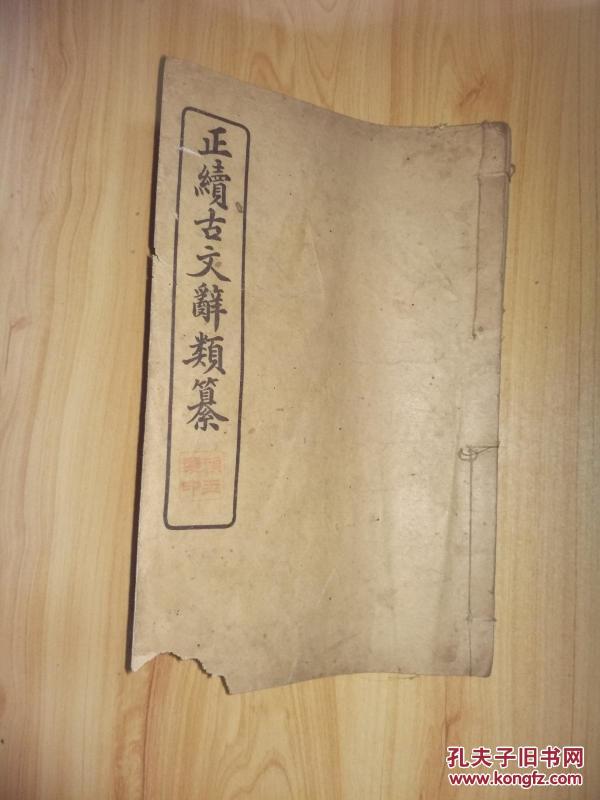 正續古文辭類纂
孔夫子旧书网
www.kongfz.com